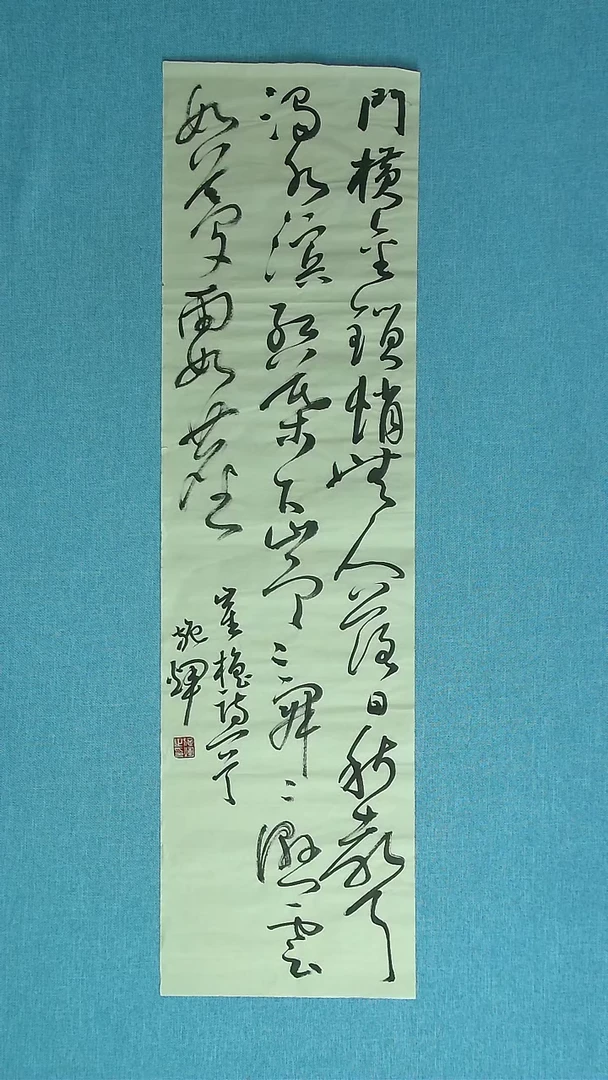 門橫金鎖悄無人落日秋聲
渭水濱紅葉下山寒寂々濕雲
如夢雨如塵
崔櫓詩一首
輝